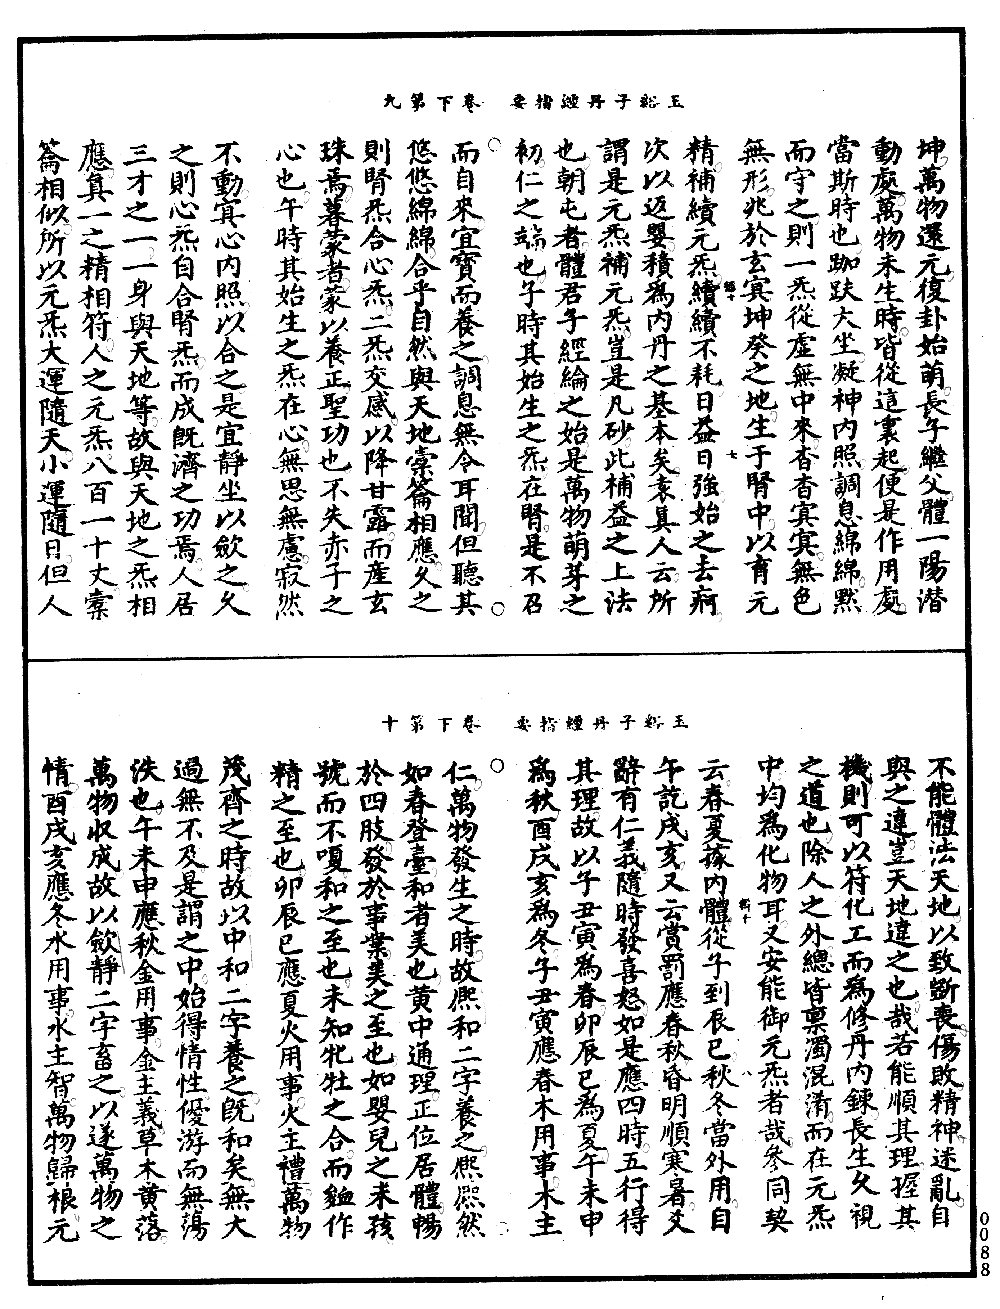 玉谿子丹經指要　卷下第九
坤萬物還元復卦始萌長子繼父體一陽潛
動處萬物未生時皆從這裏起便是作用處
當斯時也跏趺大坐凝神內照調息綿綿默
而守之則一炁從虛無中來杳杳冥冥無色
無形兆於玄冥坤癸之地生于腎中以育元
精補續元炁續續不耗日益日強始之去痾
次以返嬰積爲內丹之基本矣袁真人云所
謂是元炁補元炁豈是凡砂此補益之上法
也朝屯者體君子經綸之始是萬物萌芽之
初仁之端也子時其始生之炁在腎是不召
而自來宜寶而養之調息無令耳聞但聽其
悠悠綿綿合乎自然與天地橐籥相應久之
則腎炁合心炁二炁交感以降甘露而產玄
珠焉暮蒙者蒙以養正聖功也不失赤子之
心也午時其始生之炁在心無思無慮寂然
不動冥心內照以合之是宜靜坐以歛之久
之則心炁自合腎炁而成旣濟之功焉人居
三才之一一身與天地等故與天地之炁相
應真一之精相符人之元炁八百一十丈橐
籥相似所以元炁大運隨天小運隨日但人
玉谿子丹經指要　卷下第十
不能體法天地以致斲喪傷敗精神迷亂自
與之違豈天地違之也哉若能順其理握其
機則可以符化工而爲修丹內鍊長生久視
之道也除人之外總皆稟濁混淆而在元炁
中均爲化物耳又安能御元炁者哉參同契
云春夏據內體從子到辰巳秋冬當外用自
午訖戌亥又云賞罰應春秋昏明順寒暑爻
辭有仁義隨時發喜怒如是應四時五行得
其理故以子丑寅爲春卯辰巳爲夏午未申
爲秋酉戌亥爲冬子丑寅應春木用事木主
仁萬物發生之時故熙和二字養之熙熙然
如春登臺和者美也黃中通理正位居體暢
於四肢發於事業美之至也如嬰兒之未孩
號而不嗄和之至也未知牝牡之合而䘒作
精之至也卯辰巳應夏火用事火主禮萬物
茂齊之時故以中和二字養之旣和矣無大
過無不及是謂之中始得情性優游而無蕩
泆也午未申應秋金用事金主義草木黃落
萬物收成故以歛靜二字畜之以遂萬物之
情酉戌亥應冬水用事水主智萬物歸根元
0088